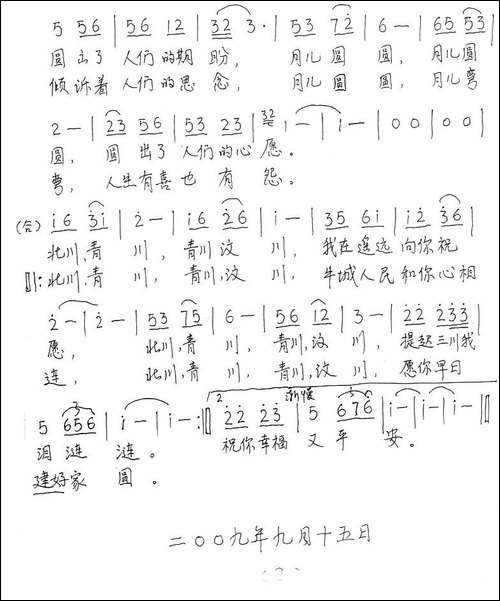 5 56 | 56 12 | 32 3 · | 53 72 | 6 — | 65 53 |
圆 出了 人们的期 盼, 月儿 圆 圆, 月儿圆
倾 诉着 人们的思 念, 月儿 圆 圆, 月儿弯
2 — | 23 56 | 53 23 | 32 i — | i — | 0 0 | 0 0 |
圆, 圆 出了 人们的心 愿。
弯, 人生有喜 也 有 怨。
(合) i6 3i | 2 — | i6 26 | i — | 35 6i | i2 36 |
北川,青 川, 青川 汶 川, 我在遥远 向你祝
北川,青 川, 青川,汶 川, 牛城人民 和你心相
2 — | 2 — | 53 75 | 6 — | 56 12 | 3 — | 22 233 |
愿, 北川,青 川, 青川,汶 川, 提起三川我
连, 北川,青 川, 青川,汶 川, 愿你早日
5 656 | i — | i — :‖ 2 22 23 | 渐慢 5 676 | i — | i — | i — ‖
泪 涟 涟。 祝你幸福 又 平 安。
建好家 圆。
二〇〇九年九月十五日
(2)